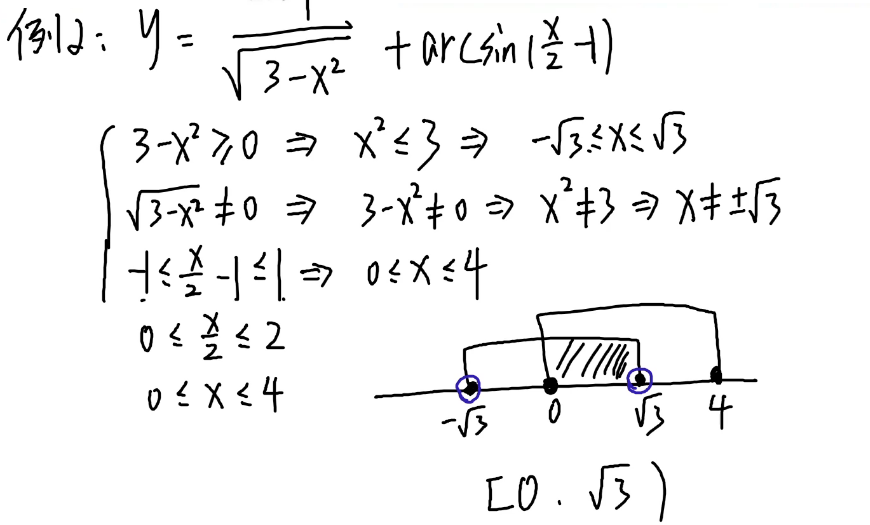 例12: y = 1/√(3-x²) + arcsin(x/2 -1)
3-x² ≥ 0 ⇒ x² ≤ 3 ⇒ -√3 ≤ x ≤ √3
√(3-x²) ≠ 0 ⇒ 3-x² ≠ 0 ⇒ x² ≠ 3 ⇒ x ≠ ±√3
-1 ≤ x/2 -1 ≤ 1 ⇒ 0 ≤ x ≤ 4
0 ≤ x/2 ≤ 2
0 ≤ x ≤ 4
-√3 0 √3 4
[0. √3)